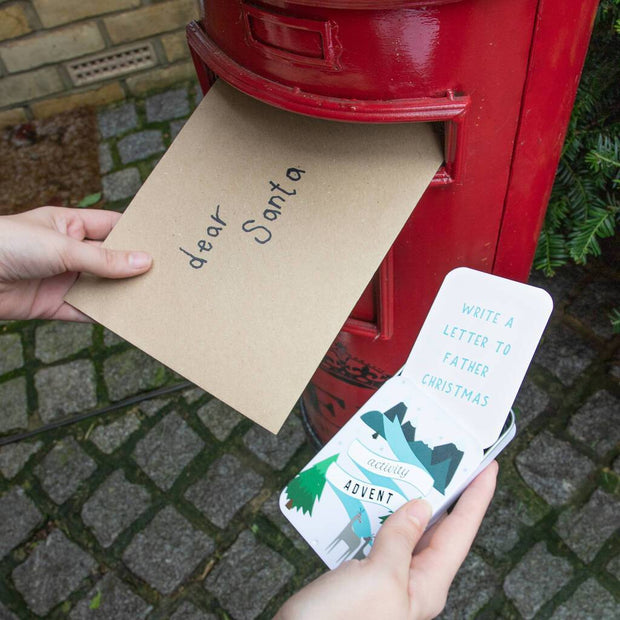 dear
Santa
WRITE A
LETTER TO
FATHER
CHRISTMAS
activity
ADVENT